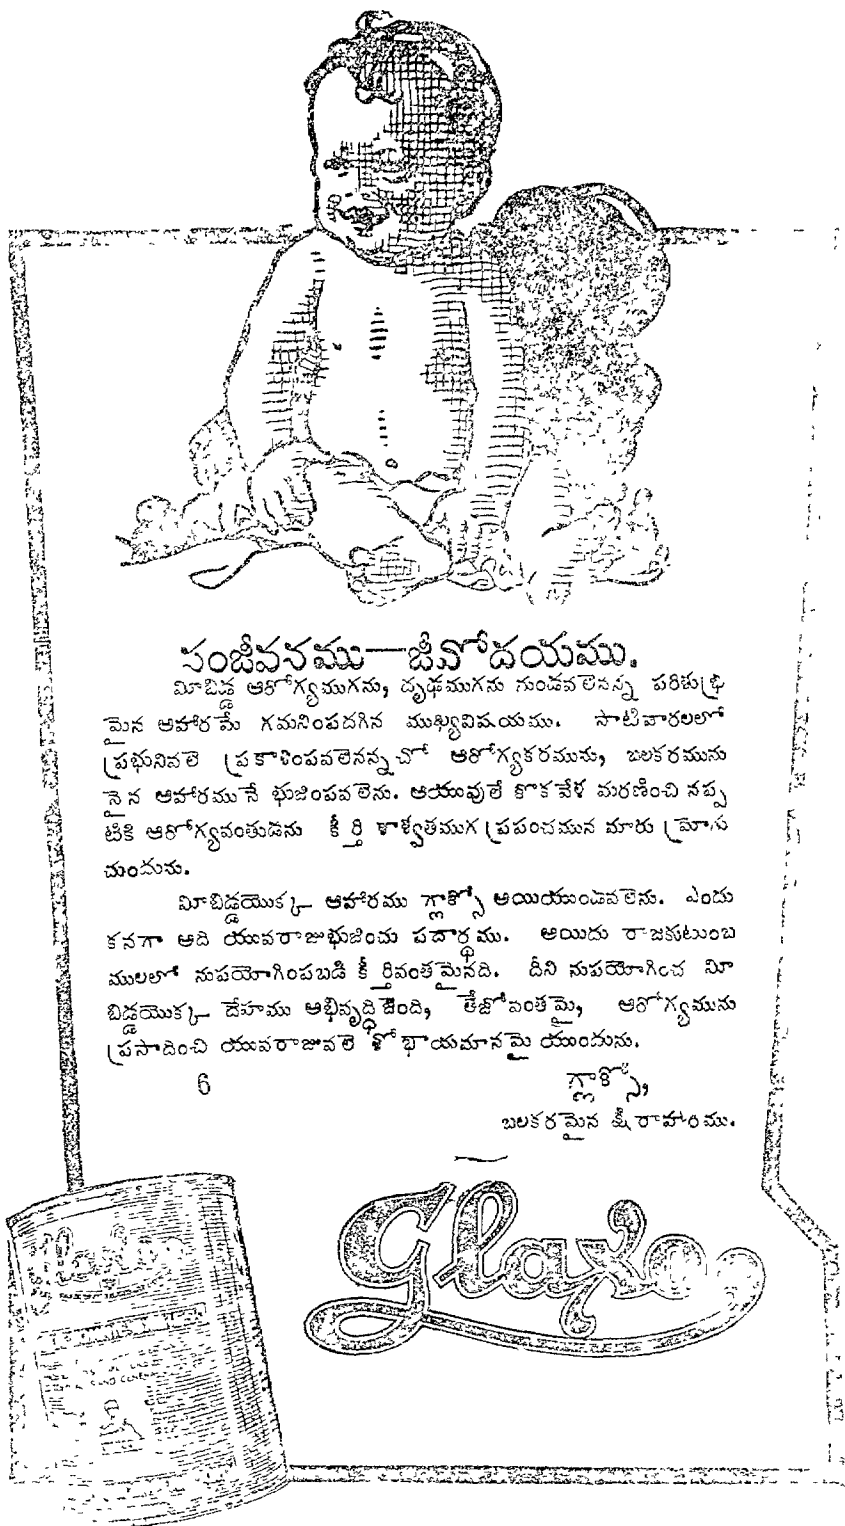 సంజీవనము—జీవోదయము.
మీబిడ్డ ఆరోగ్యముగను, దృఢముగను నుండవలెనన్న పరిశుభ్ర
మైన ఆహారమే గమనింపదగిన ముఖ్యవిషయము. సాటివారలలో
ప్రభునివలె ప్రకాశింపవలెనన్నచో ఆరోగ్యకరమును, బలకరమును
నైన ఆహారమునే భుజింపవలెను. ఆయువులే కొకవేళ మరణించి నప్ప
టికి ఆరోగ్యవంతుడను కీర్తి శాశ్వతముగ ప్రపంచమున మారు మ్రోగు
చుండును.
మీబిడ్డయొక్క ఆహారము గ్లాక్సో అయియుండవలెను. ఎందు
కనగా ఆది యువరాజుభుజించు పదార్థము. అయిదు రాజకుటుంబ
ములలో నుపయోగింపబడి కీర్తివంతమైనది. దీని నుపయోగించ మీ
బిడ్డయొక్క దేహము అభివృద్ధిజెంది, తేజోవంతమై, ఆరోగ్యమును
ప్రసాదించి యువరాజువలె శోభాయమానమై యుండును.
6 గ్లాక్సో,
బలకరమైన క్షీరాహారము.
Glaxo